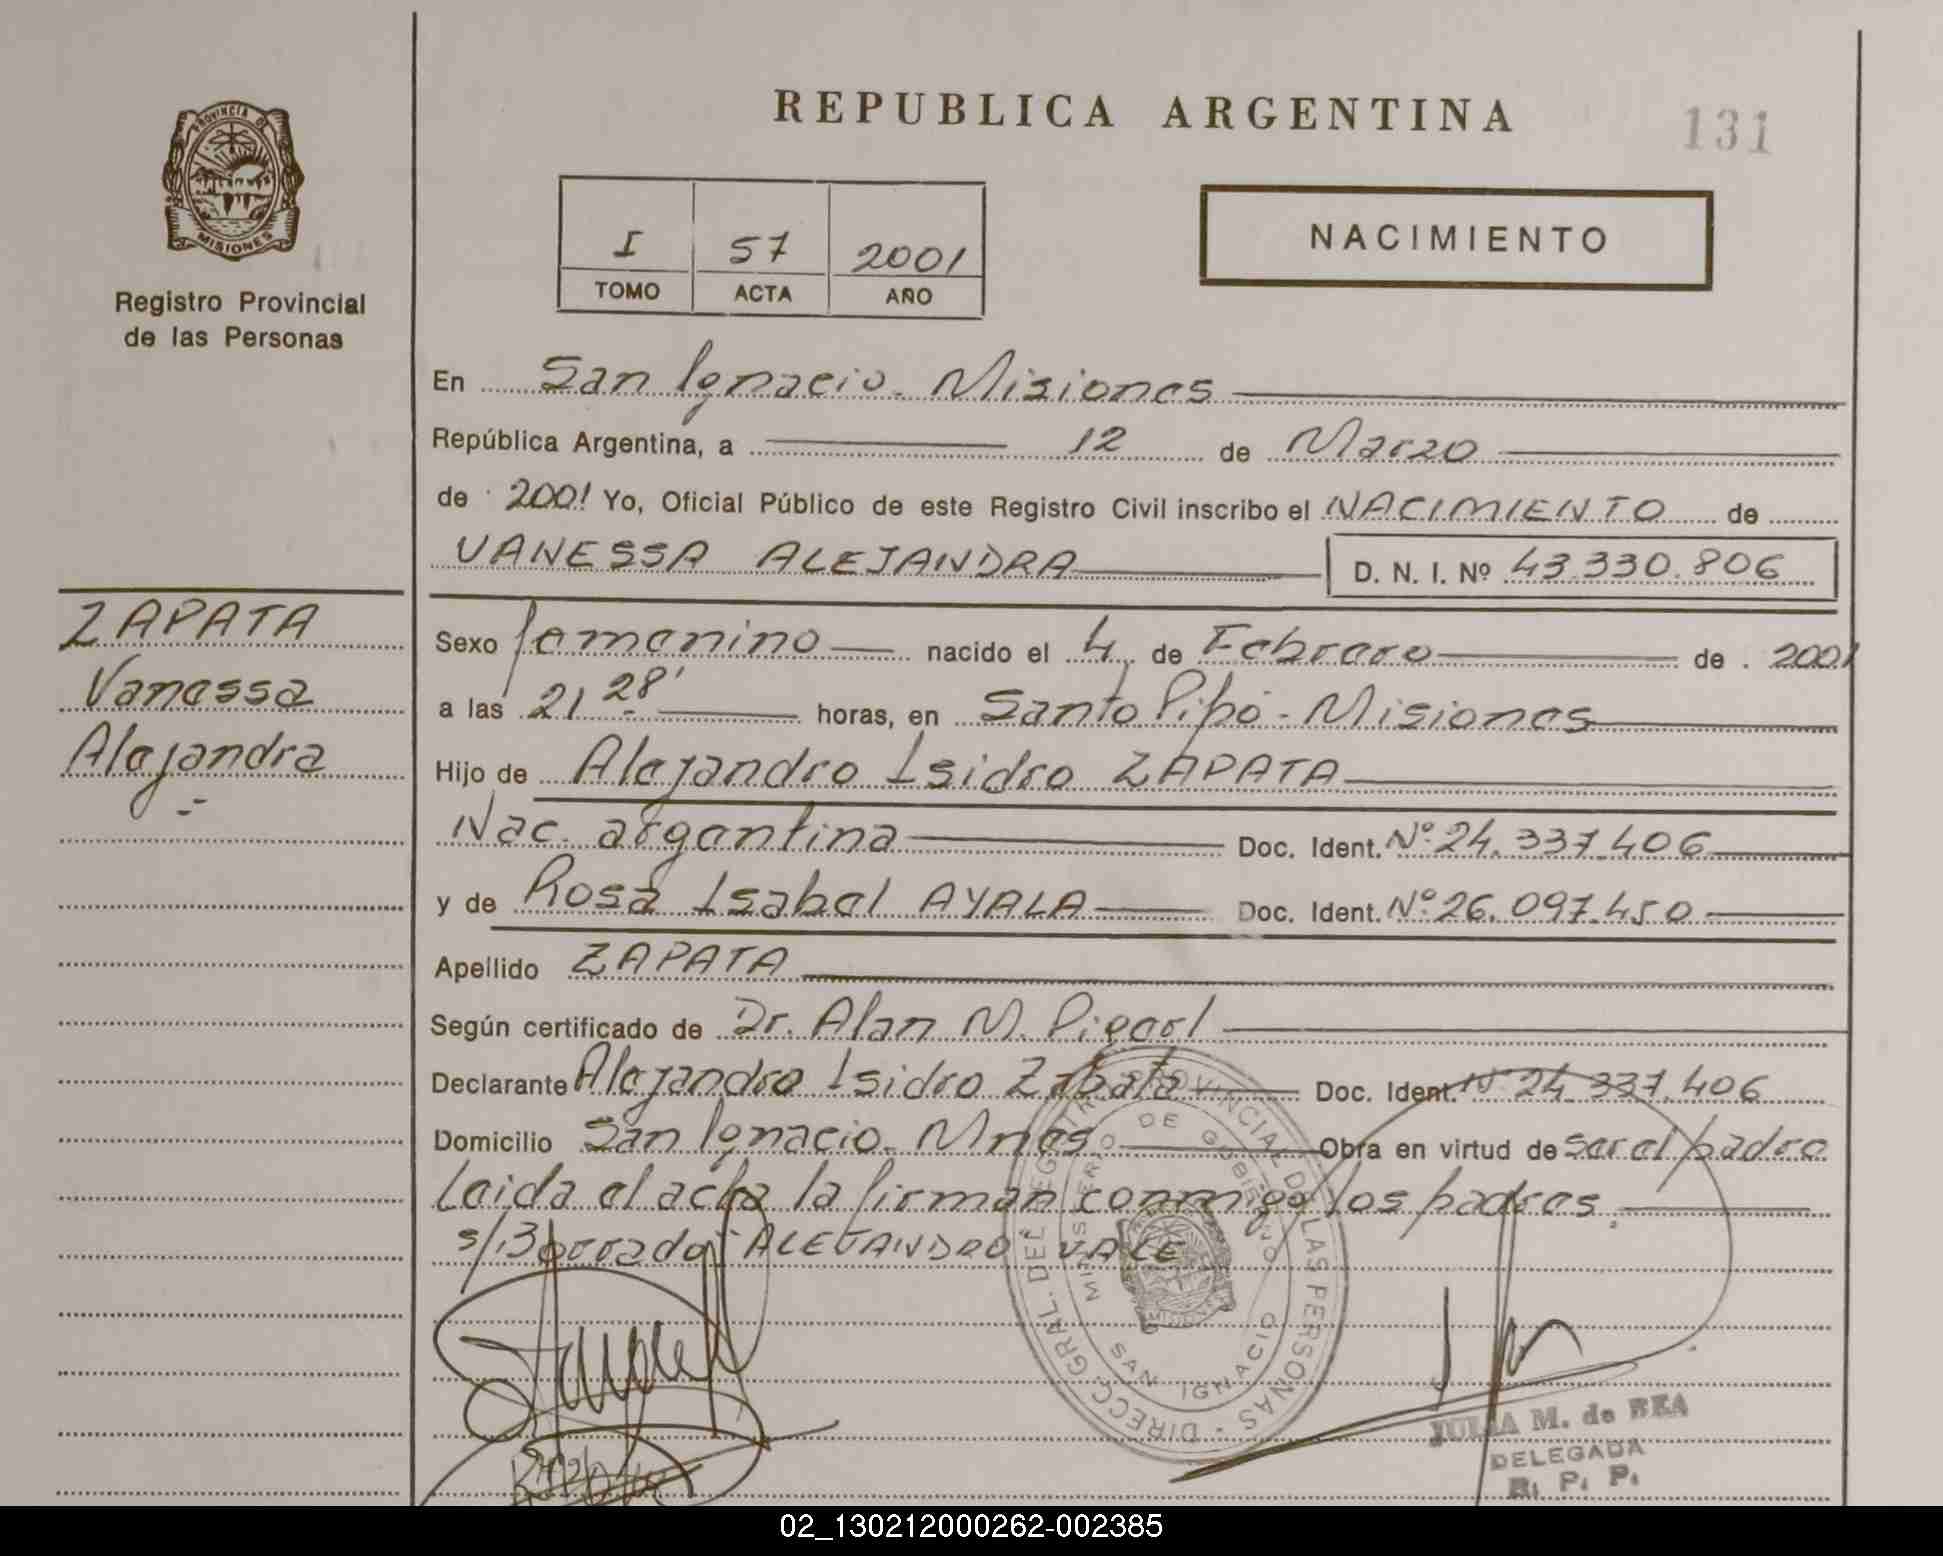 REPUBLICA ARGENTINA
131
PROVINCIA DE
MISIONES
Registro Provincial
de las Personas
I 57 2001
TOMO ACTA AÑO
NACIMIENTO
En San Ignacio - Misiones
República Argentina, a 12 de Marzo
de 2001 Yo, Oficial Público de este Registro Civil inscribo el NACIMIENTO de
VANESSA ALEJANDRA D. N. I. Nº 43.330.806
ZAPATA
Vanessa
Alejandra
Sexo femenino nacido el 4 de Febrero de 2001
a las 21 28' horas, en Santo Pipó - Misiones
Hijo de Alejandro Isidro ZAPATA
Nac. argentina Doc. Ident. Nº 24.337.406
y de Rosa Isabel AYALA Doc. Ident. Nº 26.097.450
Apellido ZAPATA
Según certificado de Dr. Alan M.
Declarante Alejandro Isidro Zapata Doc. Ident. Nº 24.337.406
Domicilio San Ignacio - Mnes Obra en virtud de ser el padre
Leida el acta la firman conmigo los padres.
s/Borrado: ALEJANDRO VALE
DIRECC. GRAL. DEL REGISTRO PROVINCIAL DE LAS PERSONAS
MINISTERIO DE GOBIERNO
SAN IGNACIO
JULIA M. de BEA
DELEGADA
R. P. P.
02_130212000262-002385